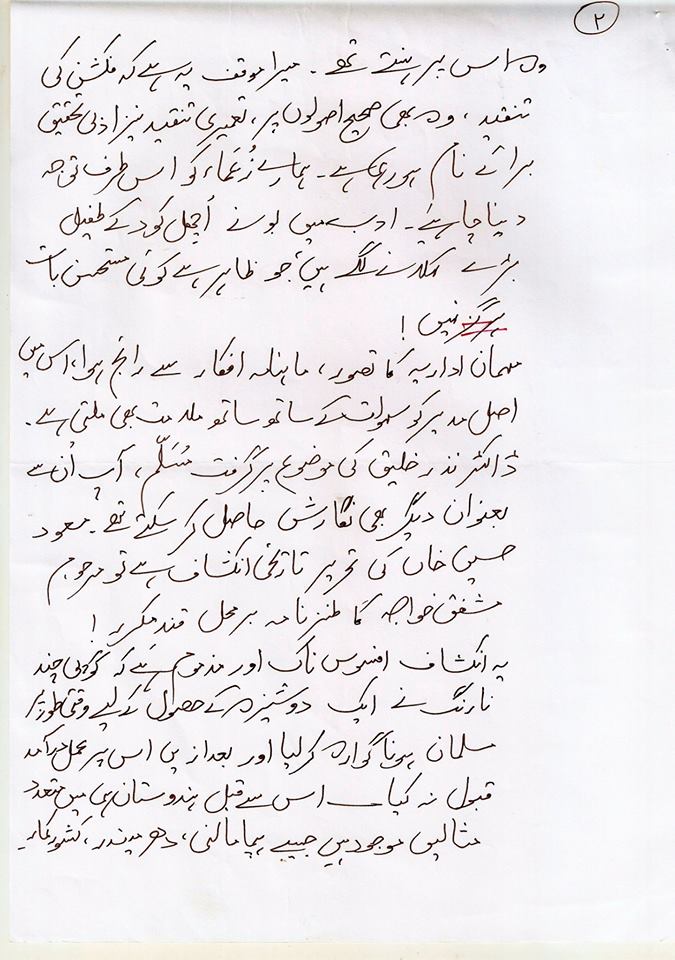 ۲
وہ اس پر ہنستے تھے۔ میرا موقف یہ ہے کہ فکشن کی
تنقید، وہ بھی صحیح اصولوں پر، تعمیری تنقید نیز ادبی تحقیق
برائے نام ہو رہی ہے۔ ہمارے زُعَماء کو اس طرف توجہ
دینا چاہیے۔ ادب میں بونے اُچھل کود کے طفیل
بڑے لگنے لگے ہیں، جو ظاہر ہے کوئی مستحسن بات
ہرگز نہیں!
مہمان اداریہ کا تصور، ماہنامہ افکار سے رائج ہوا، اس میں
اصل مدیر کو سہولت کے ساتھ ساتھ ملامت بھی ملتی ہے۔
ڈاکٹر نذر خلیق کی موضوع پر گرفت مُسَلّم، آپ اُن سے
بعنوان دیگر بھی نگارش حاصل کر سکتے تھے۔ مسعود
حسین خاں کی تحریر تاریخی انکشاف ہے تو مرحوم
مشفق خواجہ کا طنز نامہ برمحل قند مکرر!
یہ انکشاف افسوس ناک اور مذموم ہے کہ گوپی چند
نارنگ نے ایک دوشیزہ کے حصول کے لیے وقتی طور پر
مسلمان ہونا گوارہ کر لیا اور بعد ازیں اس پر عمل درآمد
قبول نہ کیا۔ اس سے قبل ہندوستان ہی میں متعدد
مثالیں موجود ہیں جیسے ہیما مالنی، دھرمیندر، کشور کمار۔